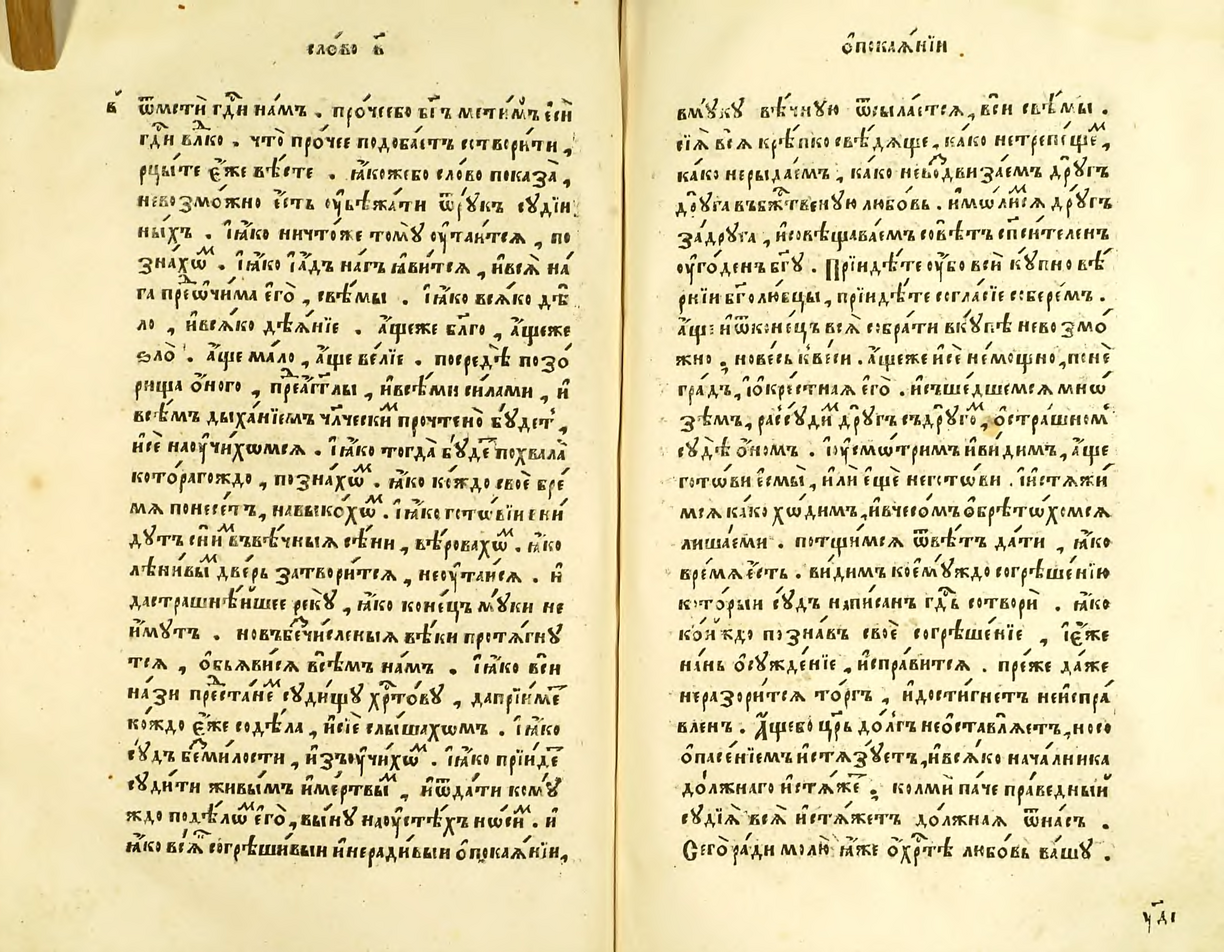 сло́во в҃
в҃ ѿмстѝ гд҇и на́мъ . про́чеебо бг҃ъ мсти́мъ є҆сѝ
гд҇и влⷣко . что̀ про́чее подоба́етъ сътвори́ти ,
рцы́те є҆́же вѣ́сте . ꙗ҆́кожебо сло́во показа̀ ,
невозмо́жно є҆́сть ᲂу҆бѣжа́ти ѿрꙋ́къ сꙋді́и
ны́хъ . і҆ꙗ́ко ничто́же томꙋ̀ ᲂу҆таи́тсѧ , по
зна́хѡⷨ . і҆ꙗ́ко і҆а́дъ на́гъ ꙗ҆ви́тсѧ , и҆всѧ̀ на́
га преⷣѻ҆чи́ма є҆гѡ̀ , свѣ́мы . і҆ꙗ́ко всѧ́ко дѣ́
ло , и҆всѧ́ко дѣѧ́нїе . а҆́щеже бл҃го , а҆́щеже
ѕло̀ . а҆́ще ма́ло , а҆́ще ве́лїе . посредѣ̀ позо́
рища о҆́ного , преⷣа҆́гг҃лы , и҆всѣ́ми си́лами , и҆
всѣ́мъ дыха́нїемъ чл҃ческиⷨ прочтено̀ бꙋ́детъ ,
и҆сѐ наᲂу҆чи́хѡмсѧ . і҆ꙗ́ко тогда̀ бꙋ́деⷮ похвала̀
кото́рагождо , позна́хѡⷨ . ꙗ҆́ко ко́ждо своѐ бре́
мѧ понесе́тъ , навыко́хѡⷨ . і҆ꙗ́ко гото́вїи вни́
дꙋтъ сни́ⷨ въвѣ́чныѧ сѣ́ни , вѣ́ровахѡⷨ . ꙗ҆́ко
лѣни́выⷨ две́рь затвори́тсѧ , неᲂу҆таи́сѧ . и҆
дастрашнѣ́йшее рекꙋ̀ , ꙗ҆́ко коне́цъ мꙋ́ки не
и҆́мꙋтъ . новъбеⷥчи́сленыѧ вѣ́ки протѧ́гнꙋ
тсѧ , ѻ҆б̾ѧви́сѧ всѣ́мъ на́мъ . і҆ꙗ́ко всѝ
на́зи преⷣста́неⷨ сꙋди́щꙋ хрⷭ҇то́вꙋ , дапрїи́меⷮ
ко́ждо є҆́же содѣ́ла , и҆сїѐ слы́шахомъ . і҆ꙗ́ко
сꙋ́дъ беⷥми́лости , и҆зъᲂу҆чи́хѡⷨ . і҆ꙗ́ко прїи́деⷮ
сꙋди́ти живы́мъ и҆ме́ртвыⷨ , и҆ѿда́ти комꙋ̀
ждо подѣ́лѡⷨ є҆гѡ̀ , вы́нꙋ наᲂу҆стѣ́хъ но́сиⷨ . и҆
ꙗ҆́ко всѧ́ⷦ согрѣши́выи и҆неради́выи ѻ҆покаѧ́нїи ,
ѻ҆покаѧ́нїи .
вмꙋ́кꙋ вѣ́чнꙋю ѿсыла́етсѧ , всѝ свѣ́мы .
сїѧ̀ всѧ̀ крѣ́пко свѣ́дѧще , ка́ко нетрепе́щеⷨ ,
ка́ко нерыда́емъ , ка́ко невоⷥдвиза́емъ дрꙋ́гъ
дрꙋ́га въбжⷭ҇твенꙋю любо́вь . и҆мѡ́лимсѧ дрꙋ́гъ
задрꙋ́га , и҆совѣщава́емъ совѣ́тъ сп҃си́теленъ
ᲂу҆го́денъ бг҃ꙋ . Прїидѣ́те ᲂу҆̀бо всѝ кꙋ́пно вѣ́
рнїи бг҃олю́бцы , прїидѣ́те согла́сїе собере́мъ .
а҆́ще и҆ѿконе́цъ всѧ̀ собра́ти вкꙋ́пѣ невозмо́
жно , новесь к̾ве́си . а҆́щеже и҆сѐ не мо́щно , понѐ
гра́дъ , і҆ѻ҆кре́стнаѧ є҆гѡ̀ . и҆съше́дшемсѧ мнѡ́
зѣмъ , разсꙋ́диⷨ дрꙋ́гъ съдрꙋ́гоⷨ , ѻ҆стра́шномъ
сꙋдѣ̀ о҆́номъ . і҆ᲂу҆смѡ́тримъ и҆ви́димъ , а҆́ще
гото́ви є҆смы̀ , и҆лѝ є҆щѐ него́тѡви . і҆и҆стѧжи́
мсѧ ка́ко хѡ́димъ , и҆вчесо́мъ ѻ҆брѣто́хомсѧ
лиша́еми . потщи́мсѧ ѿвѣ́тъ да́ти , ꙗ҆́ко
вре́мѧ є҆́сть . ви́димъ коемꙋ́ждо согрѣше́нїю
кото́рыи сꙋ́дъ напи́санъ гд҇ь сотворѝ . ꙗ҆́ко
ко́йждо позна́въ своѐ согрѣше́нїе , і҆є҆́же
на́нь ѻ҆сꙋжде́нїе , и҆спра́витсѧ . пре́же да́же
неразори́тсѧ то́ргъ , и҆дости́гнетъ неиспра́
вленъ . А҆́щебо цр҃ь до́лгъ неѻ҆ставлѧ́етъ , носо
ѻ҆пасе́нїемъ и҆стѧзꙋ́етъ , и҆всѧ́ко нача́лника
до́лжнаго и҆стѧ́жеⷮ , колмѝ па́че пра́ведный
сꙋдїѧ̀ всѧ̀ и҆стѧ́жетъ до́лжнаѧ ѿна́съ .
Сегѡ̀ ра́ди молю̀ ꙗ҆́же ѻ҆хрⷭ҇тѣ̀ любо́вь ва́шꙋ .